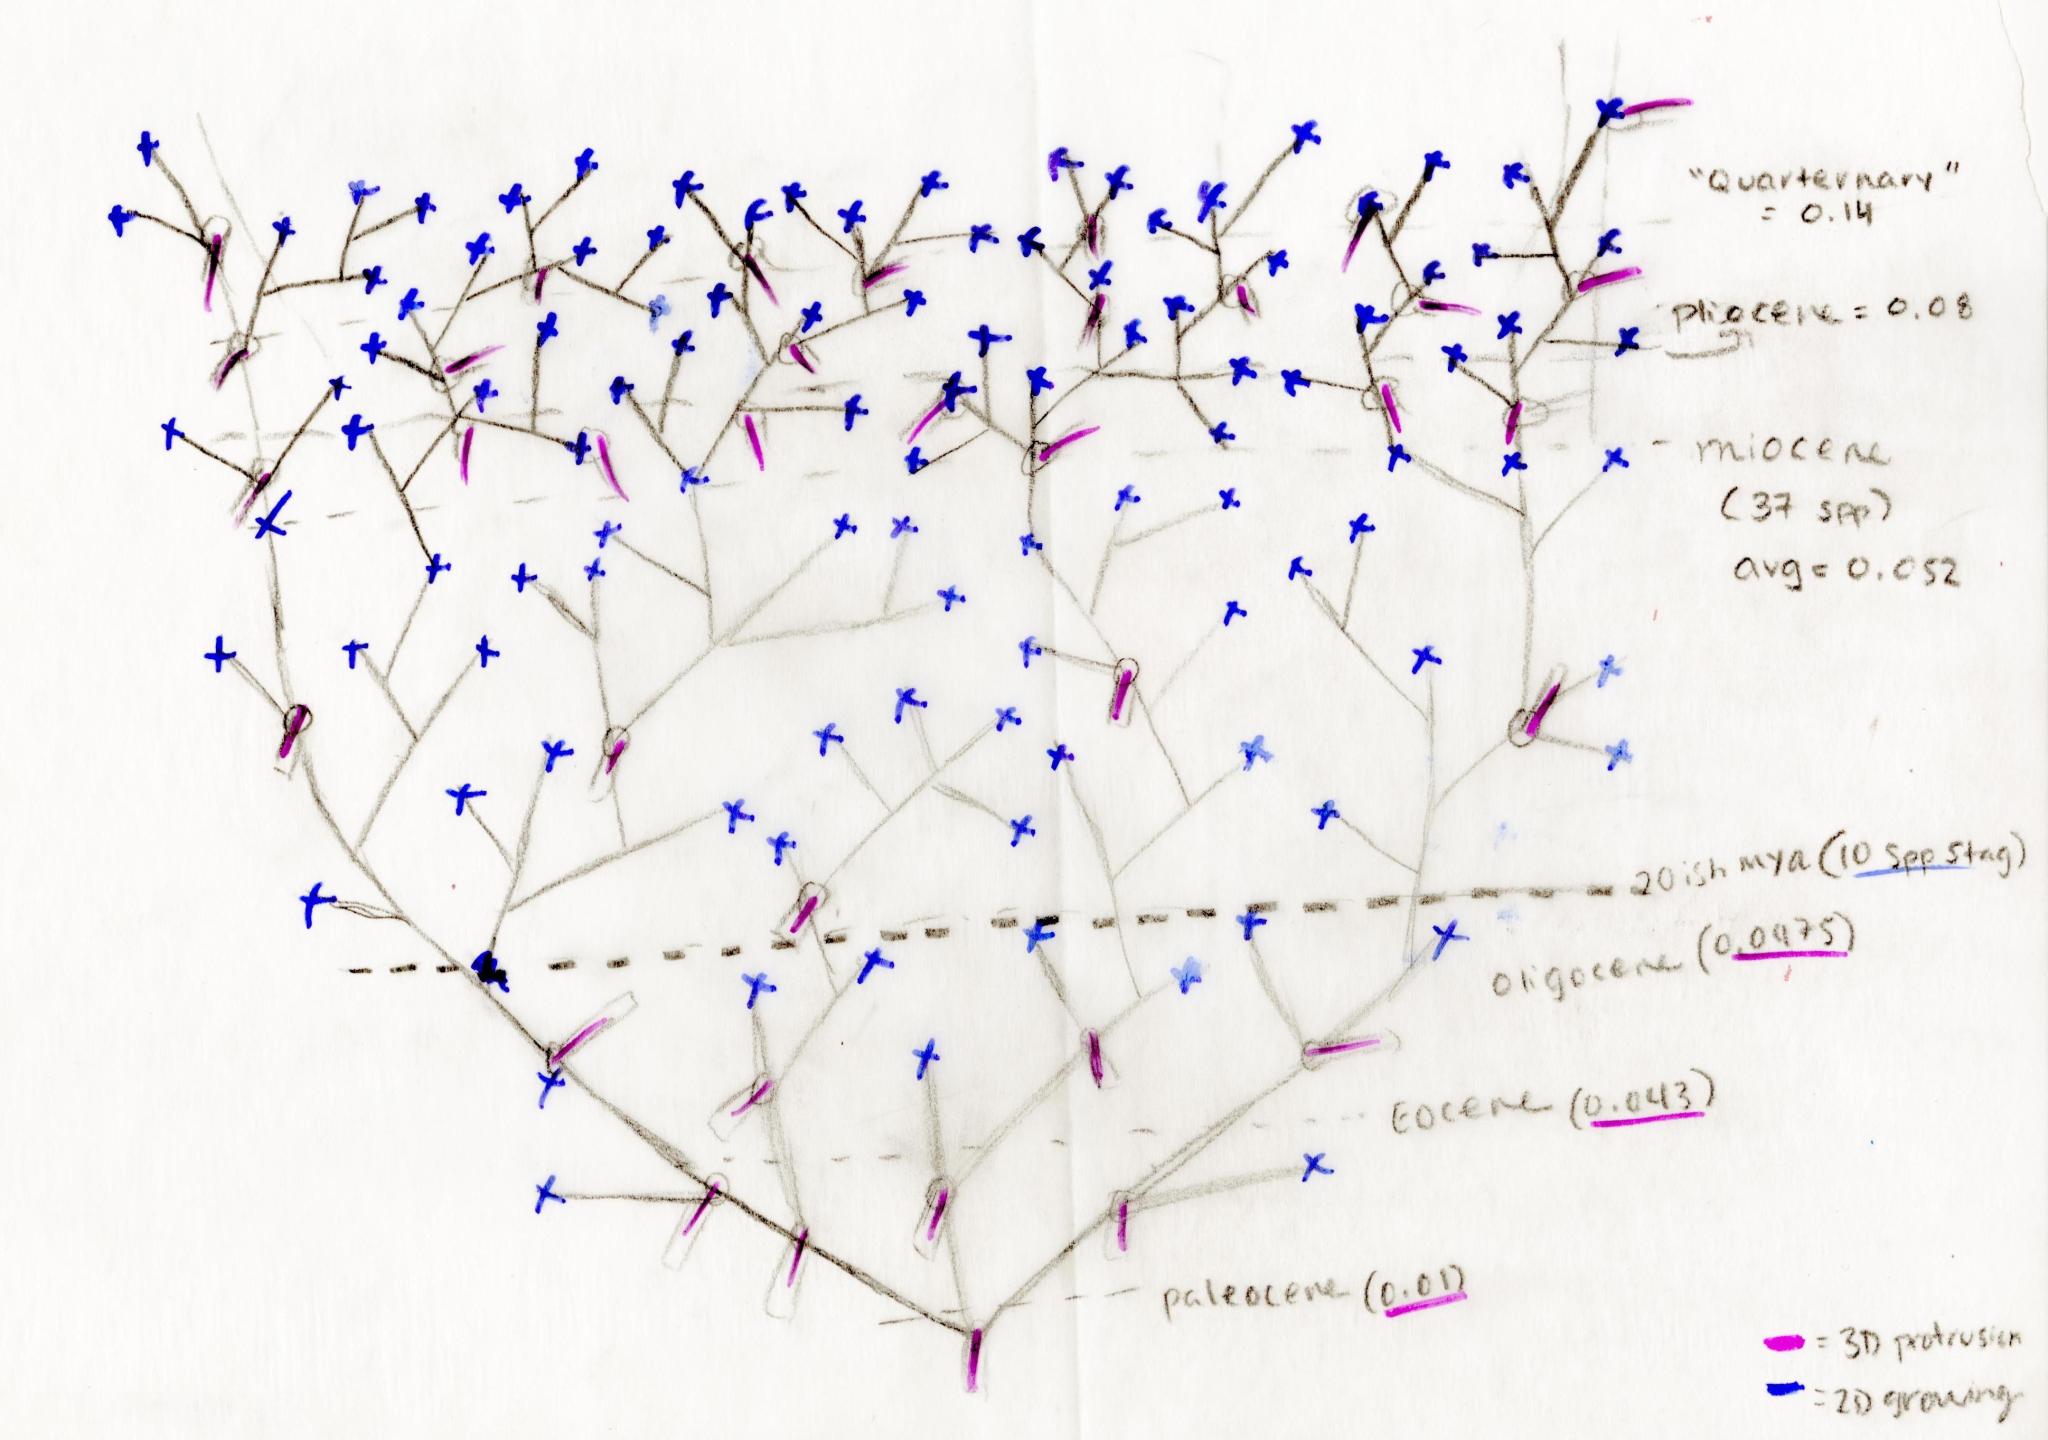 "Quarternary"
= 0.14
pliocene = 0.08
miocene
(37 spp)
avg = 0.052
20ish mya (10 spp stag)
oligocene (0.0475)
Eocene (0.043)
paleocene (0.01)
= 3D protrusion
= 2D growing